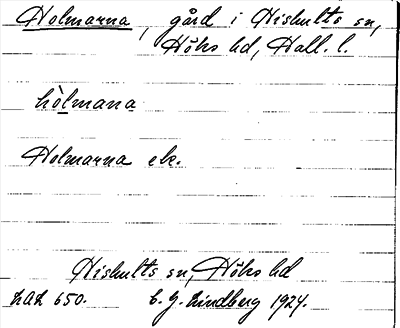 Holmarna, gård i Hishults sn,
Höks hd, Hall. l.
hòlmana
Holmarna ek.
Hishults sn, Höks hd
LAL 650. C. G. Lindberg 1924.